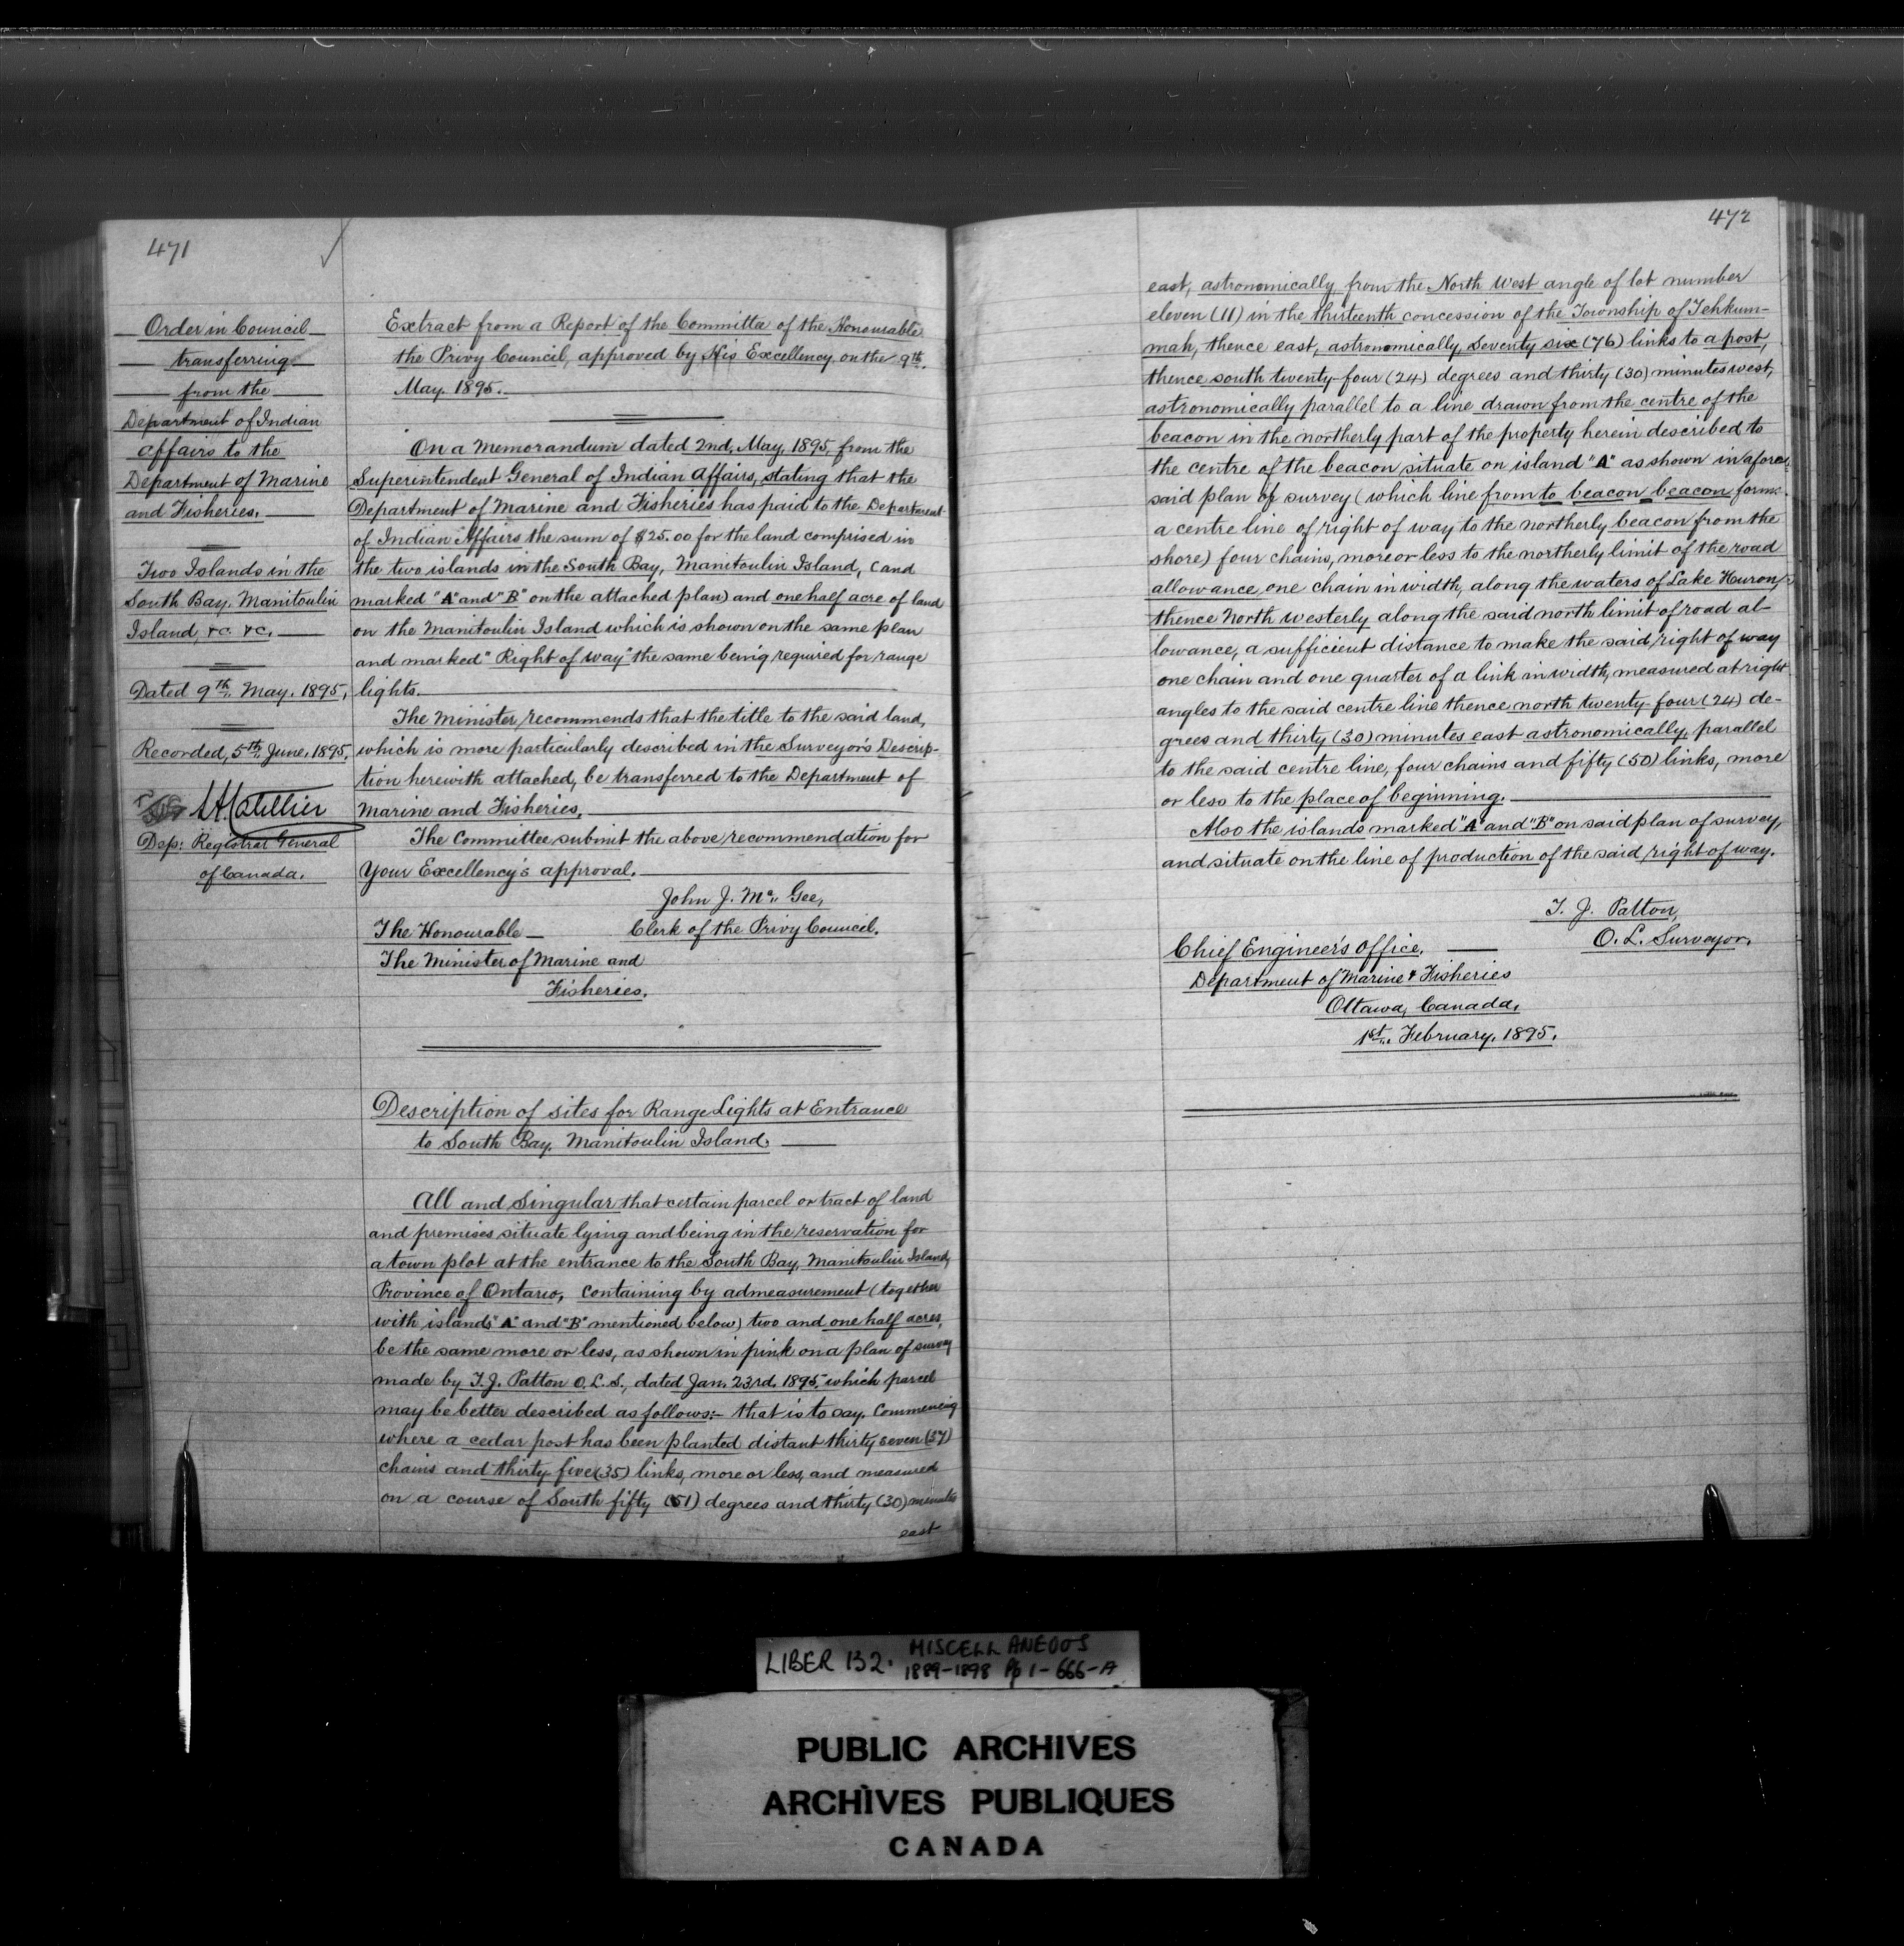 471
Order in Council
transferring
from the
Department of Indian
affairs to the
Department of Marine
and Fisheries.
Two Islands in the
South Bay, Manitoulin
Island, &c. &c.
Dated 9th May, 1895,
Recorded, 5th June, 1895,
Dep: Registrar General
of Canada.
Extract from a Report of the Committee of the Honourable
the Privy Council, approved by His Excellency on the 9th
May. 1895.
On a Memorandum dated 2nd. May, 1895, from the
Superintendent General of Indian Affairs, stating that the
Department of Marine and Fisheries has paid to the Department
of Indian Affairs the sum of $25.00 for the land comprised in
the two islands in the South Bay, Manitoulin Island, (and
marked "A" and "B" on the attached plan) and one half acre of land
on the Manitoulin Island which is shown on the same plan
and marked "Right of way" the same being required for range
lights.
The Minister recommends that the title to the said land,
which is more particularly described in the Surveyor's Descrip-
tion herewith attached, be transferred to the Department of
Marine and Fisheries.
The Committee submit the above recommendation for
Your Excellency's approval.
John J. McGee,
Clerk of the Privy Council.
The Honourable
The Minister of Marine and
Fisheries.
Description of sites for Range Lights at Entrance
to South Bay, Manitoulin Island.
All and Singular that certain parcel or tract of land
and premises situate lying and being in the reservation for
a town plot at the entrance to the South Bay, Manitoulin Island,
Province of Ontario, containing by admeasurement (together
with islands "A" and "B" mentioned below) two and one half acres,
be the same more or less, as shown in pink on a plan of survey
made by T. J. Patton O. L. S., dated Jan. 23rd. 1895, which parcel
may be better described as follows:- that is to say. Commencing
where a cedar post has been planted distant thirty seven (37)
chains and thirty-five (35) links, more or less, and measured
on a course of South fifty (51) degrees and thirty (30) minutes
east
472
east, astronomically from the North West angle of lot number
eleven (11) in the thirteenth concession of the Township of Tehkum-
mah, thence east, astronomically, seventy six (76) links to a post,
thence south twenty-four (24) degrees and thirty (30) minutes west,
astronomically parallel to a line drawn from the centre of the
beacon in the northerly part of the property herein described to
the centre of the beacon situate on island "A" as shown in afore-
said plan of survey (which line from to beacon beacon forms
a centre line of right of way to the northerly beacon from the
shore) four chains, more or less to the northerly limit of the road
allowance, one chain in width, along the waters of Lake Huron,
thence North westerly along the said north limit of road al-
lowance, a sufficient distance to make the said right of way
one chain and one quarter of a link in width, measured at right
angles to the said centre line thence north twenty-four (24) de-
grees and thirty (30) minutes east astronomically, parallel
to the said centre line, four chains and fifty (50) links, more
or less to the place of beginning.
Also the islands marked "A" and "B" on said plan of survey,
and situate on the line of production of the said right of way.
T. J. Patton,
O. L. Surveyor.
Chief Engineer's office.
Department of Marine & Fisheries
Ottawa, Canada,
1st. February, 1895.
LIBER 132. MISCELLANEOUS
1889-1898 Pp 1-666-A
PUBLIC ARCHIVES
ARCHIVES PUBLIQUES
CANADA